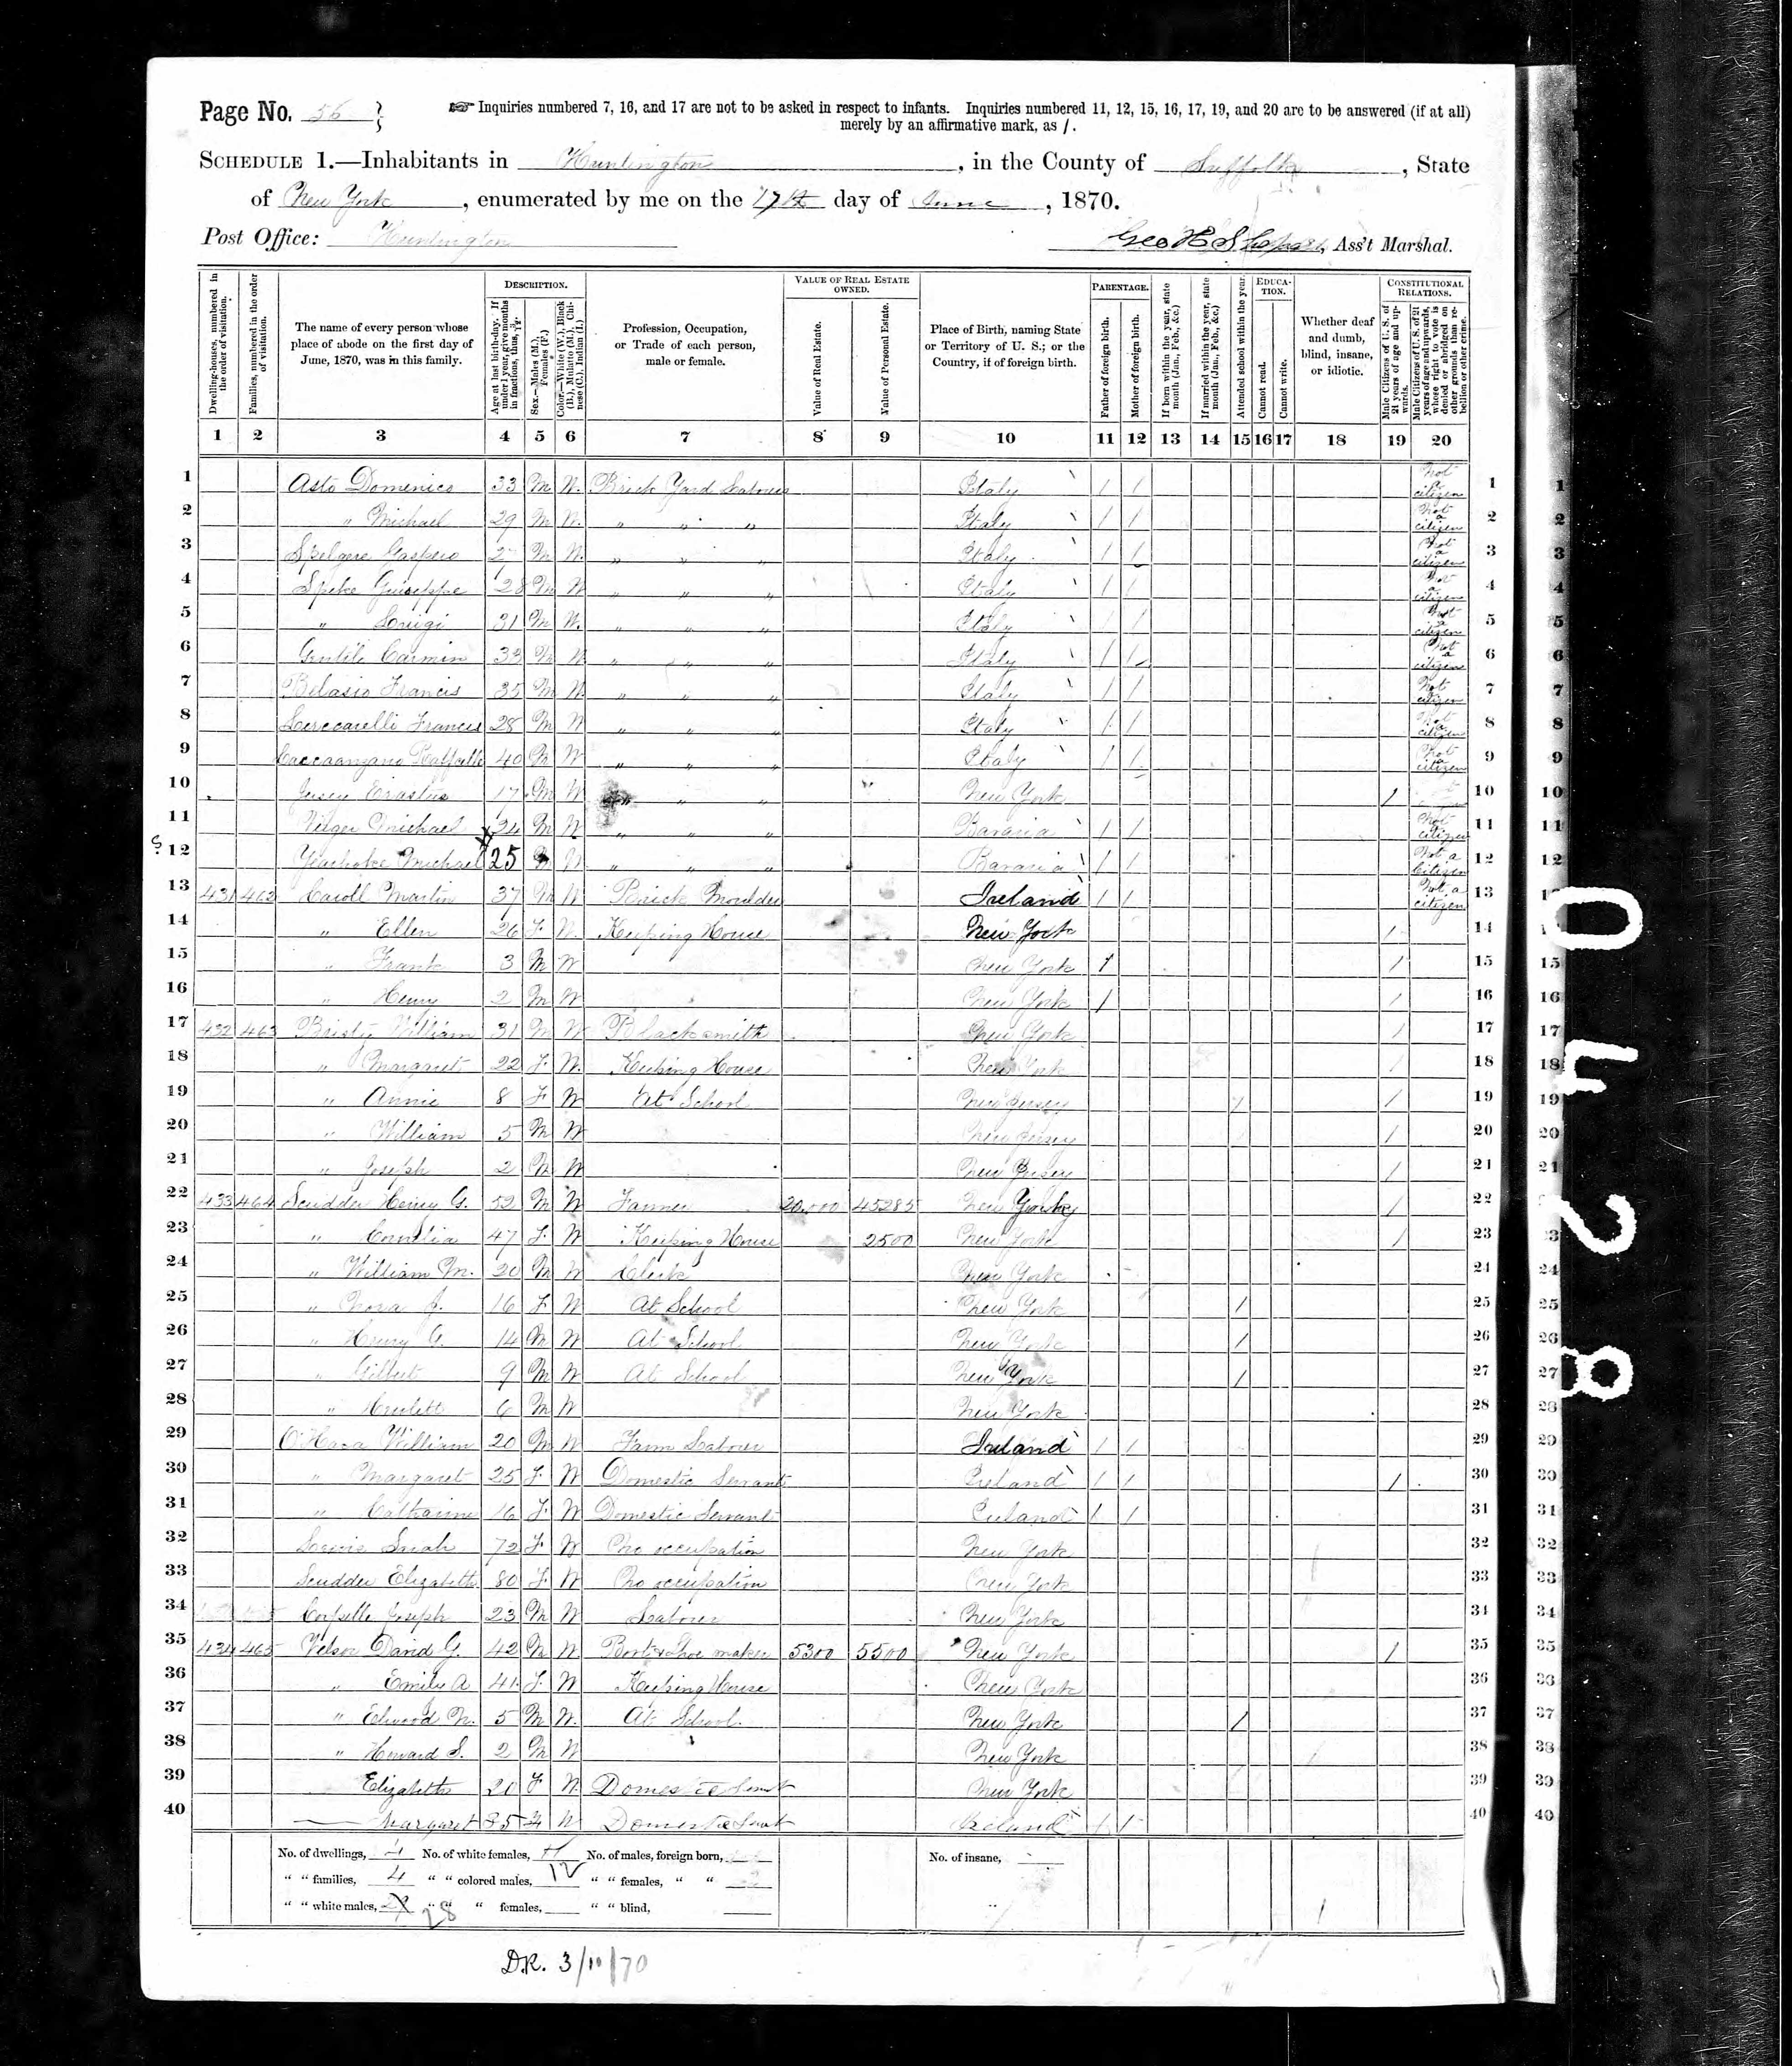 Page No. 56
☞ Inquiries numbered 7, 16, and 17 are not to be asked in respect to infants. Inquiries numbered 11, 12, 15, 16, 17, 19, and 20 are to be answered (if at all)
merely by an affirmative mark, as /.
SCHEDULE 1.—Inhabitants in Huntington, in the County of Suffolk, State
of New York, enumerated by me on the 17th day of June, 1870.
Post Office: Huntington
Geo H S, Ass't Marshal.
DESCRIPTION.
VALUE OF REAL ESTATE OWNED.
PARENTAGE.
EDUCATION.
CONSTITUTIONAL RELATIONS.
Dwelling-houses, numbered in the order of visitation.
Families, numbered in the order of visitation.
The name of every person whose place of abode on the first day of June, 1870, was in this family.
Age at last birth-day. If under 1 year, give months in fractions, thus,
Sex.—Males (M.), Females (F.)
Color.—White (W.), Black (B.), Mulatto (M.), Chinese (C.), Indian (I.)
Profession, Occupation, or Trade of each person, male or female.
Value of Real Estate.
Value of Personal Estate.
Place of Birth, naming State or Territory of U. S.; or the Country, if of foreign birth.
Father of foreign birth.
Mother of foreign birth.
If born within the year, state month (Jan., Feb., &c.)
If married within the year, state month (Jan., Feb., &c.)
Attended school within the year.
Cannot read.
Cannot write.
Whether deaf and dumb, blind, insane, or idiotic.
Male Citizens of U. S. of 21 years of age and upwards.
Male Citizens of U. S. of 21 years of age and upwards, whose right to vote is denied or abridged on other grounds than rebellion or other crime.
1 2 3 4 5 6 7 8 9 10 11 12 13 14 15 16 17 18 19 20
1 Asto Domenico 33 M W. Brick Yard Laborer Italy / / Not a citizen 1
2 " Michael 29 M W. " " " Italy / / Not a citizen 2
3 Gaspero 27 M W. " " " Italy / / Not a citizen 3
4 Speke Guiseppe 28 M W " " " Italy / / Not a citizen 4
5 " Luigi 31 M W. " " " Italy / / Not a citizen 5
6 Gentile Carmin 33 M W " " " Italy / / Not a citizen 6
7 Belasio Francis 35 M W " " " Italy / / Not a citizen 7
8 Francis 28 M W " " " Italy / / Not a citizen 8
9 Raffaelle 40 M W " " " Italy / / Not a citizen 9
10 Jersey Erastus 17 M W " " " New York / 10
11 Michael 24 M W " " " Bavaria / / Not citizen 11
12 Michael 25 M W " " " Bavaria / / Not a Citizen 12
13 431 462 Caroll Martin 37 M W Brick Moulder Ireland / / Not a citizen 13
14 " Ellen 26 F W. Keeping House New York / 14
15 " Frank 3 M W New York / / 15
16 " Henry 2 M W New York / / 16
17 432 463 William 31 M W Blacksmith New York / 17
18 " Margaret 22 F W. Keeping House New York / 18
19 " Annie 8 F W At School New Jersey / / 19
20 " William 5 M W New Jersey / 20
21 " Joseph 2 M W New Jersey / 21
22 433 464 Scudder Henry G. 52 M W Farmer 20,000 45285 New York / 22
23 " Cornelia 47 F. W Keeping House 2500 New York / 23
24 " William M. 20 M W Clerk New York 24
25 " J. 16 F W At School New York / 25
26 " Henry G. 14 M W At School New York / 26
27 " Gilbert 9 M W At School New York / 27
28 " Hewlett 6 M W New York 28
29 O'Hara William 20 M W Farm Laborer Ireland / / 29
30 " Margaret 25 F. W Domestic Servant Ireland / / / 30
31 " Catharine 16 F. W Domestic Servant Ireland / / 31
32 72 F W No occupation New York 32
33 Scudder Elizabeth 80 F. W No occupation New York 33
34 Joseph 23 M W Laborer New York 34
35 434 465 Velsor David G. 42 M W Boot & Shoe maker 5300 5500 New York / 35
36 " Emily A 41 F. W Keeping House New York 36
37 " Elwood N. 5 M W. At School. New York / 37
38 " Howard S. 2 M W New York 38
39 Elizabeth 20 F W. Domestic Servt New York 39
40 — Margaret 35 F W Domestic Servt Ireland / / 40
No. of dwellings, 4 No. of white females, 11 No. of males, foreign born, No. of insane,
" " families, 4 " " colored males, 12 " " females, " "
" " white males, 28 " " " females, " " blind,
D.R. 3/10/70
0428